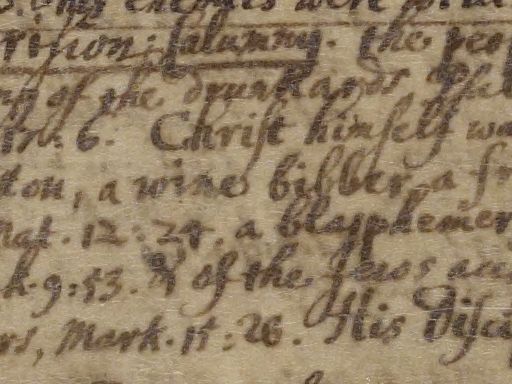 enemies were
rision: Calumny. the peo
of the drunkards psal
6. Christ himself wa
ton, a wine bibber, a fr
Mat. 12: 24. a blasphemer
k. 9: 53. & of the Jews acc
rs, Mark. 15: 28. His Disci